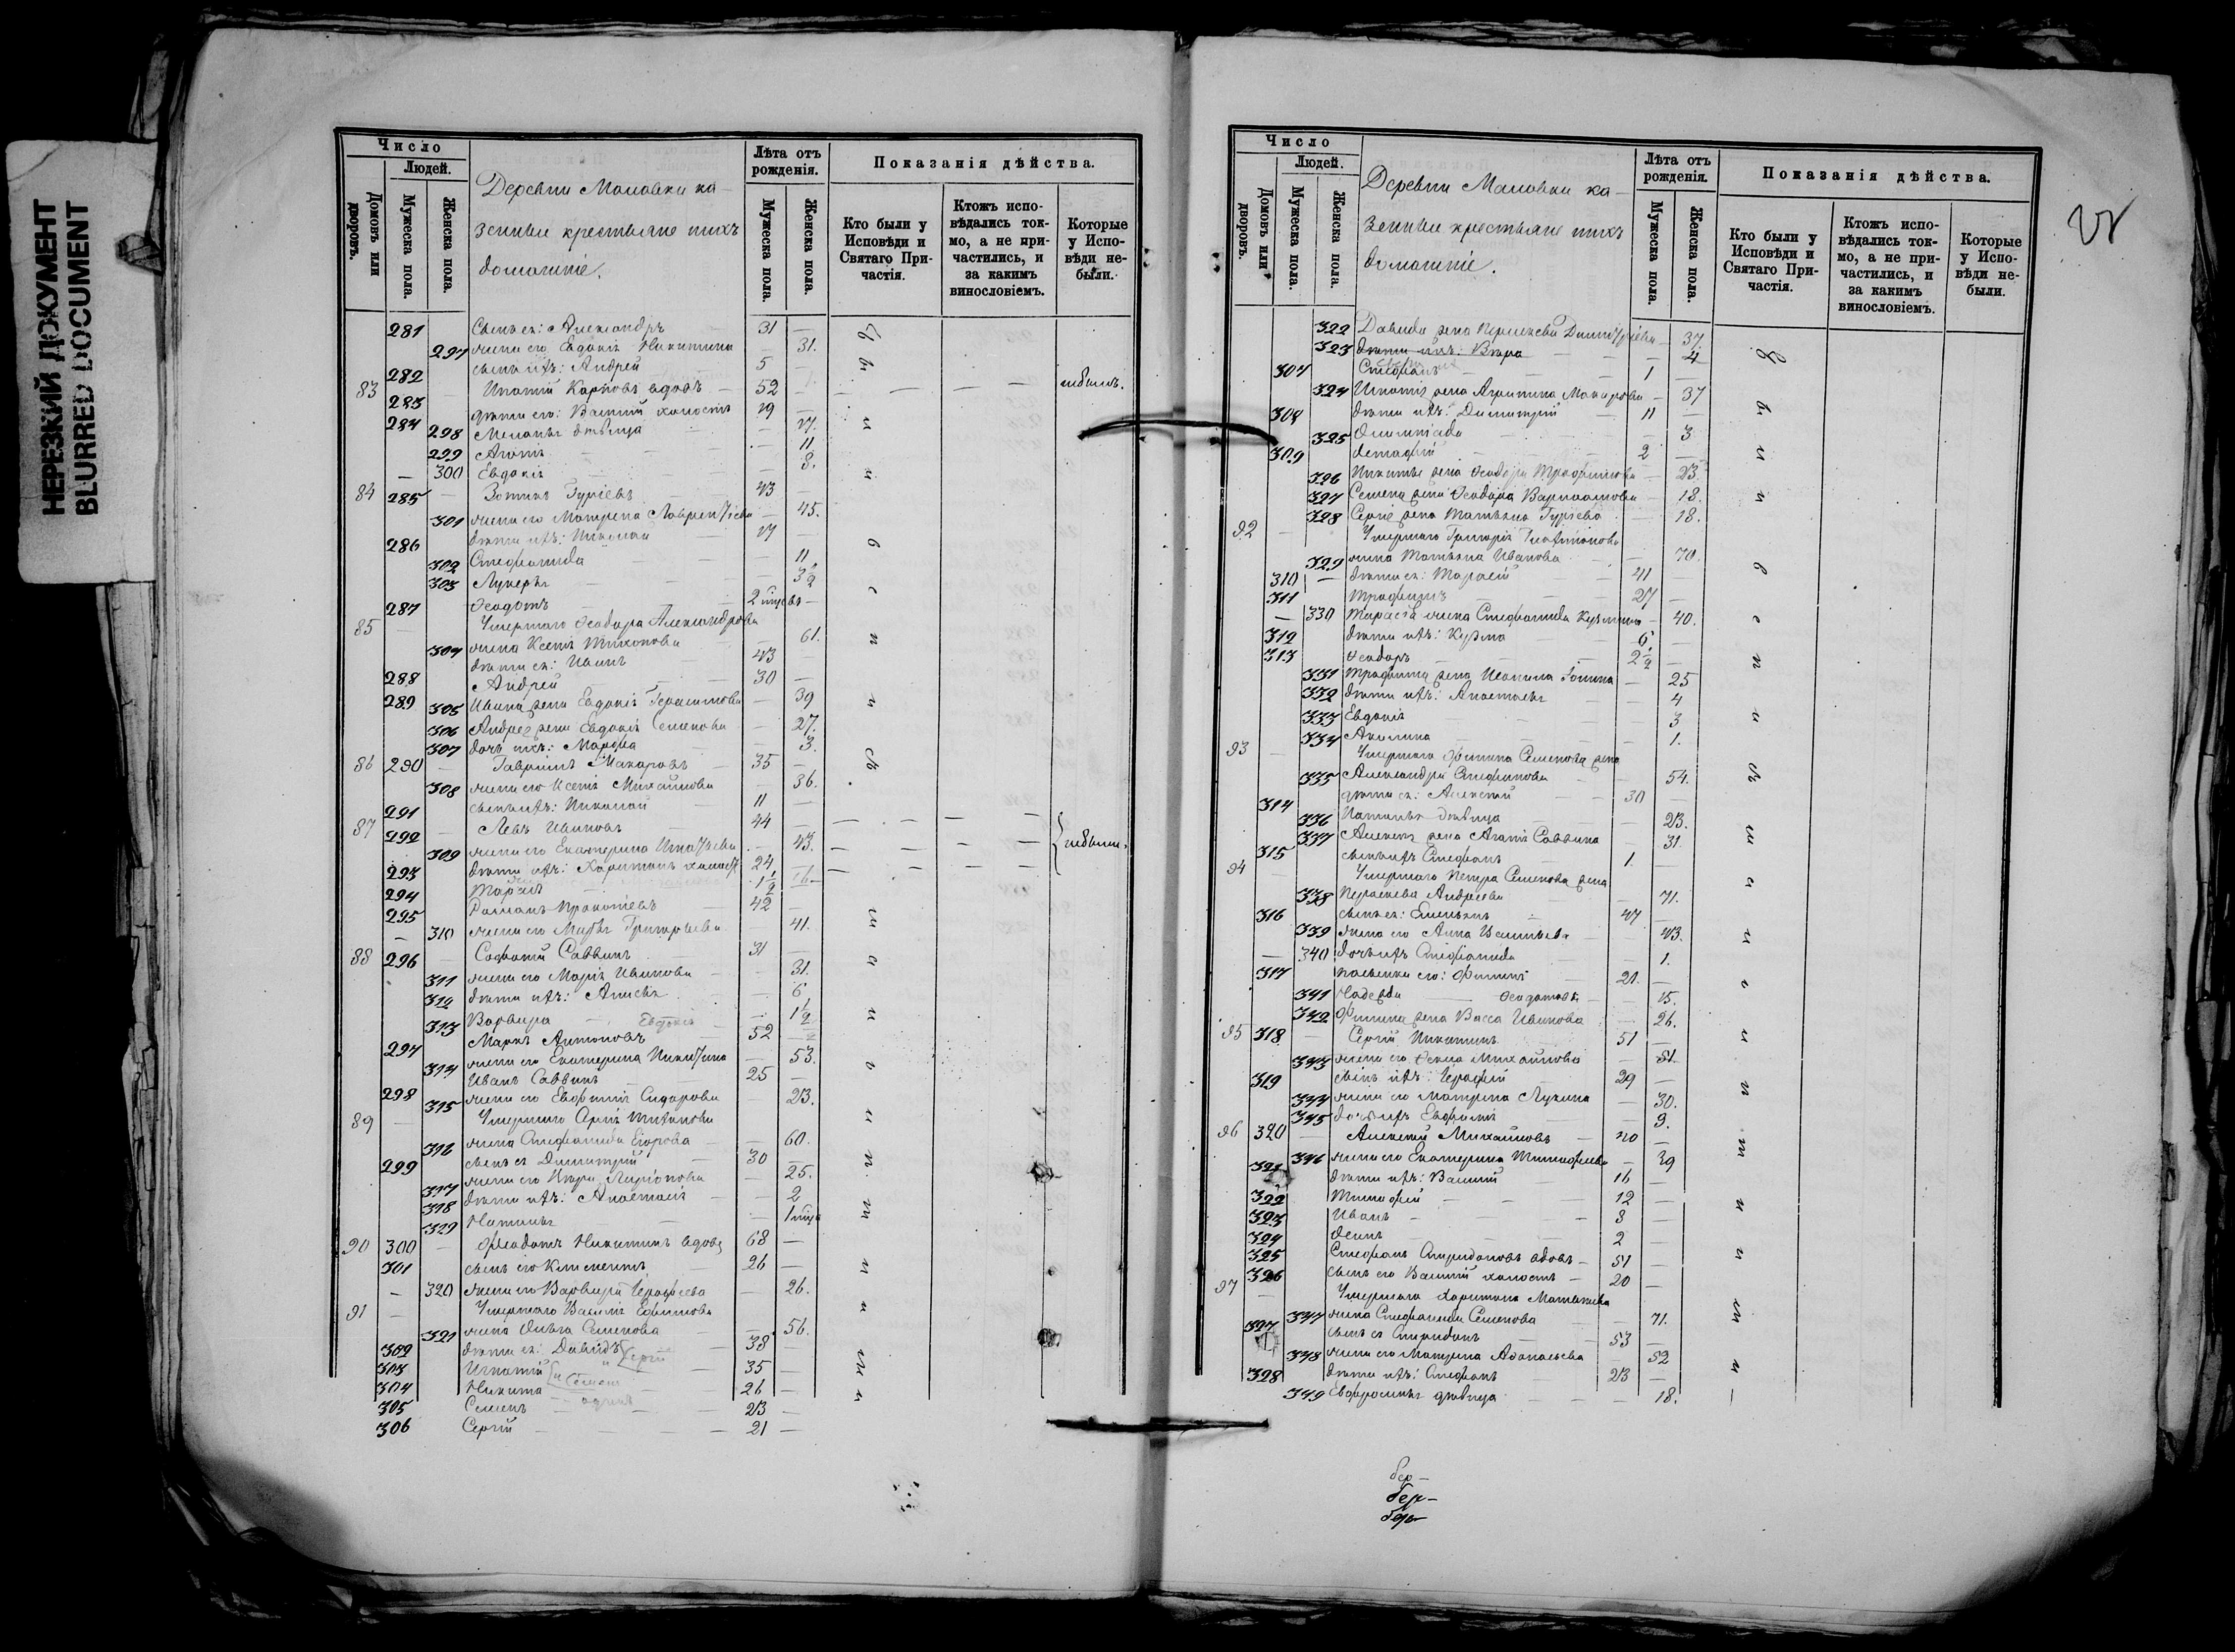 НЕРЕЗКИЙ ДОКУМЕНТ
BLURRED DOCUMENT
Число
Людей.
Домовъ или дворовъ.
Мужеска пола.
Женска пола.
Деревни Маловки ка-
зенные крестьяне и ихъ
домашніе.
Лѣта отъ рожденія.
Мужеска пола.
Женска пола.
Показанія дѣйства.
Кто были у Исповѣди и Святаго Причастія.
Ктожъ исповѣдались токмо, а не причастились, и за какимъ винословіемъ.
Которые у Исповѣди небыли.
281 Сынъ ея: Александръ 31 —
297 жена его Евдокія Никитина — 31.
282 сынъ ихъ: Андрей 5 —
83 283 Игнатій Карповъ вдовъ — 52 — небылъ.
284 дѣти его: Василій холостъ 19 —
298 Меланья дѣвица — 17.
299 Агафья — 11
300 Евдокія — 8.
84 285 Зотикъ Гуріевъ 43 —
301 жена его Матрена Лаврентіева — 45.
286 дѣти ихъ: Николай 17 —
302 Стефанида — 11
303 Лукерья — 3 1/2
287 Ѳеодотъ 2 мцовъ —
85 Умершаго Ѳеодора Александрова
304 жена Ксенія Тихонова — 61.
288 дѣти ея: Иванъ 43 —
289 Андрей 30 —
305 Ивана жена Евдокія Герасимова — 39
306 Андрея жена Евдокія Семенова — 27.
307 дочь ихъ: Марфа — 3.
86 290 Гавріилъ Макаровъ — 35 —
308 жена его Ксенія Михайлова — 36.
291 сынъ ихъ: Николай 11 —
87 292 Левъ Ивановъ 44 — небыли.
309 жена его Екатерина Игнатьева — 43.
293 дѣти ихъ: Харитонъ холостъ 24 —
294 Тарасій 1 1/2
295 Романъ Прокопіевъ 42 —
310 жена его Марѳа Григорьева — 41.
88 296 Савватій Саввинъ 31 —
311 жена его Марія Иванова — 31.
312 дѣти ихъ: Анисья — 6
313 Варвара Евдокія — 1 1/2
297 Маркъ Антоновъ 52 —
314 жена его Екатерина Никитина — 53.
298 Иванъ Саввинъ 25 —
315 жена его Евфимія Сидорова — 23.
89 Умершаго Сергія Титанова
316 жена Стефанида Егорова — 60.
299 сынъ ея Димитрій 30 —
317 жена его Вѣра Ларіонова — 25.
318 дѣти ихъ: Анастасія — 2
329 Наталья — 1 мца
90 300 Ѳеодотъ Никитинъ вдовъ 68 —
301 сынъ его Климентъ 26 —
320 жена его Варвара Ерофеева — 26.
91 Умершаго Василія Ефимова
321 жена Ольга Семенова — 56.
302 дѣти ея: Давидъ 38 — Сергій
303 Игнатій 35 — и Семенъ
304 Никита 26 — одинъ
305 Семенъ 23 —
306 Сергій 21 —
Число
Людей.
Домовъ или дворовъ.
Мужеска пола.
Женска пола.
Деревни Маловки ка-
зенные крестьяне и ихъ
домашніе.
Лѣта отъ рожденія.
Мужеска пола.
Женска пола.
Показанія дѣйства.
Кто были у Исповѣди и Святаго Причастія.
Ктожъ исповѣдались токмо, а не причастились, и за какимъ винословіемъ.
Которые у Исповѣди небыли.
322 Давида жена Параскева Димитріева — 37.
323 дѣти ихъ: Вѣра — 4
307 Стефанъ 1 —
324 Игнатія жена Агрипина Макарова — 37
308 дѣти ихъ: Димитрій — 11 —
325 Олимпіада — 3
309 2 —
326 Никиты жена Ѳеодора Трофимова — 23.
327 Семена жена Ѳеодора Варлаамова — 18.
328 Сергія жена Татьяна Гуріева — 18.
92 Умершаго Григорія
329 жена Татьяна Иванова — 70.
310 дѣти ея: Тарасій 41 —
311 Трофимъ 27 —
330 Тарасія жена Стефанида Кузмина — 40.
312 дѣти ихъ: Кузма 6. —
313 Ѳеодоръ 2 1/2 —
331 Трофима жена 25
332 дѣти ихъ: Анастасья — 4
333 Евдокія — 3
334 Акилина — 1.
93 Умершаго Филипа Семенова жена
335 Александра Стефанова — 54.
314 дѣти ея: Алексей 30 —
336 Наталья дѣвица — 23.
337 Алексея жена Агафія Саввина — 31.
315 сынъ ихъ Стефанъ 1. —
94 Умершаго Петра Семенова жена
338 Параскева Андреева — 71.
316 сынъ ея: Емельянъ 47 —
339 жена его Анна Васильева — 43.
340 дочь ихъ Стефанида — 1.
317 пасынки его: Филипъ 21. —
341 Надежда Ѳеодотовы — 15.
342 Филипа жена Васса Иванова — 26.
95 318 Сергій Никитинъ 51 —
343 жена его Ѳекла Михайлова — 51.
319 сынъ ихъ: Ерофей 29 —
344 жена его Матрена Лукина — 30.
345 дочь ихъ Евфимія — 9.
96 320 Алексей Михайловъ — 40 —
346 жена его Екатерина Тимофеева — 39
321 дѣти ихъ: Василій 16 —
322 Тимофей 12 —
323 Иванъ — 8 —
324 2 —
325 Стефанъ Спиридоновъ вдовъ — 51 —
326 сынъ его Василій холостъ — 20 —
97 Умершаго Харитона Матвѣева
347 жена Стефанида Семенова — 71.
327 сынъ ея Спиридонъ 53 —
348 жена его Матрена Аѳанасьева — 52
328 дѣти ихъ: Стефанъ 23 —
349 Евфросинья дѣвица — 18.
бер-
бер-
бер-